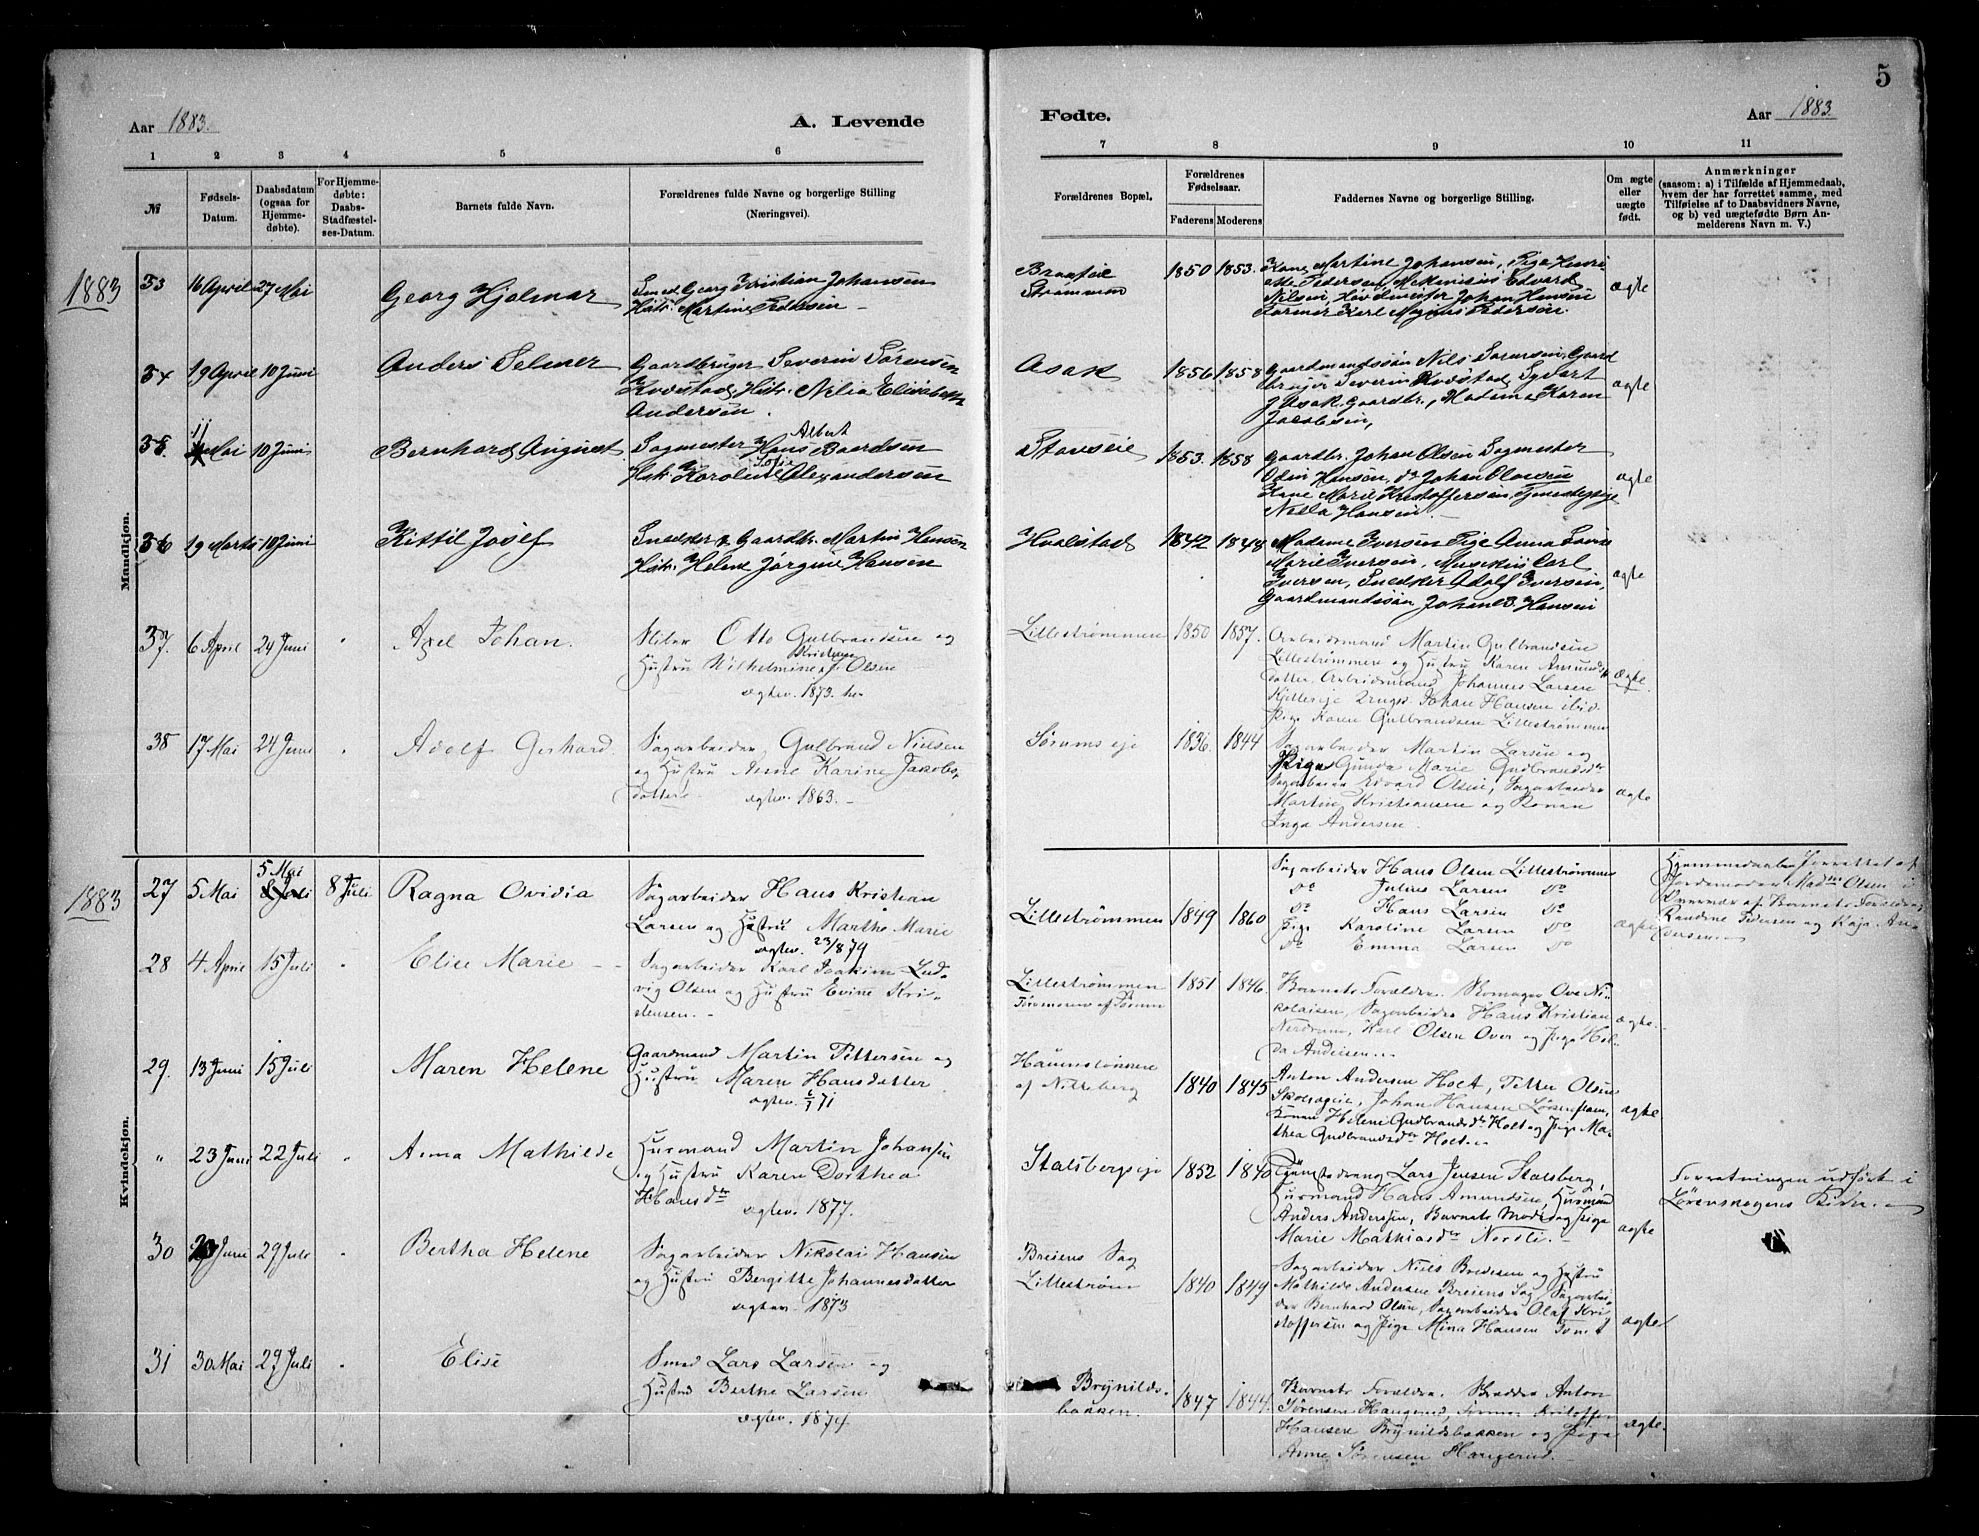 5
Aar 1883.
A. Levende
Fødte.
Aar 1883.
1 2 3 4 5 6 7 8 9 10 11
№
Fødsels-
Datum.
Daabsdatum
(ogsaa for
Hjemme-
døbte).
For Hjemme-
døbte:
Daabs-
Stadfæstel-
ses-Datum.
Barnets fulde Navn.
Forældrenes fulde Navne og borgerlige Stilling
(Næringsvei).
Forældrenes Bopæl.
Forældrenes
Fødselsaar.
Faderens Moderens
Faddernes Navne og borgerlige Stilling.
Om ægte
eller
uægte
født.
Anmærkninger
(saasom: a) i Tilfælde af Hjemmedaab,
hvem der har forrettet samme, med
Tilføielse af to Daabsvidners Navne,
og b) ved uægtefødte Børn An-
melderens Navn m. V.)
Mandkjøn.
1883
33 16 April 27 Mai
Georg Hjalmar
Smed Georg Kristian Johansen
Hstr. Martine Pedersen
Strømmen
1850 1853.
Kone Martine Johansen, Pige Henri-
ette Pedersen, Edvard
Nilsen, Johan Hansen
Former Karl Magnus Pedersen.
ægte
34 19 April 10 Juni
Anders Selmer
Gaardbruger Severin Sørensen
Kvæstad Hstr. Nilia Elisabeth
Andersen.
Asak
1856 1858
Gaardmandssøn Nils Sørensen, Gaard
bruger Severin Kvæstad, Syvert
Asak Gaardbr., Madame Karen
Jacobsen,
ægte
35 11 Mai 10 Juni
Bernhard August
Albert
Sagmester Hans Baardsen
Sofie
Hstr. Karoline Alexandersen
Stavseie
1853. 1858
Gaardbr. Johan Olsen Sagmester
Odin Hansen, do Johan Olausen
Kone Marie Kristoffersen, Tjenestepige
Nella Hansen
ægte
36 19 Marts 10 Juni
Kittil Josef
Snedker & Gaardbr. Martin Hansen
Hstr. Helene Jørgine Hansen
Hvalstad
1842 1848
Madame Iversen Pige Anna Lovise
Marie Iversen, Musikus Carl
Iversen, Snedker Adolf Iversen,
Gaardmandssøn Johan B. Hansen
ægte
37. 6 April 24 Juni "
Axel Johan.
Sliber Otto Gulbrandsen og
Kristiane
Hustru Wilhelmine f. Olsen
ægtev. 1873.
Lillestrømmen
1850 1857.
Arbeidsmand Martin Gulbrandsen
Lillestrømmen og Hustru Karen Amunds-
datter, Arbeidsmand Johannes Larsen
Kjelleseje Johan Hansen ibid.
Pige Karen Gulbrandsen Lillestrømmen
ægte
38 17 Mai 24 Juni "
Adolf Gerhard.
Sagarbeider Gulbrand Nielsen
og Hustru Anne Karine Jakobs-
datter. ægtev. 1863.
Sørums eje
1836. 1844
Sagarbeider Martin Larsen og
Pige Gunda Marie Gudbrandsdr
Sagarbeider Edvard Olsen, Sagarbeider
Martin Kristiansen og Konen
Inga Andersen.
ægte
Kvindekjøn.
1883
27 5 Mai 5 Mai 8 Juli 8 Juli
Ragna Ovidia
Sagarbeider Hans Kristian
Larsen og Hustru Martha Marie
ægtev. 23/8 79
Lillestrømmen
1849 1860
Sagarbeider Hans Olsen Lillestrømmen
do Julius Larsen do
do Hans Larsen do
Pige Karoline Larsen do
do Emma Larsen do
ægte
Hjemmedaab forrettet af
Jordemoder Madm Olsen i
Nærvær af Barnets Forældre,
Randine Pedersen og Kaja An-
dersen.
28 4 April 15 Juli "
Elise Marie
Sagarbeider Karl Joakim Lud-
vig Olsen og Hustru Evine Kri-
stensen.
Lillestrømmen
1851 1846.
Barnets Forældre. Skomager Ove Ni-
kolaisen, Sagarbeider Hans Kristian
Nerdrum, Karl Olsen Over og Pige Hul-
da Andersen.
ægte
29. 13 Juni 15 Juli
Maren Helene
Gaardmand Martin Pettersen og
Hustru Maren Hansdatter.
ægtev. 71
af Nitteberg
1840 1845
Anton Andersen Holt, Petter Olsen
Johan Hansen
Konen Helene Gudbrandsdr Holt og Pige Mar-
thea Gudbrandsdr Holt.
ægte
" 23 Juni 22 Juli "
Anna Mathilde
Husmand Martin Johansen
og Hustru Karen Dorthea
Hansdr ægtev. 1877.
Stalsbergseje
1852 1840
Tjenestedreng Lars Jensen Stalsberg,
Husmand Hans Amundsen, Husmand
Anders Andersen, Barnets Moder og Pige
Marie Mathiasdr Nordli.
ægte
Forretningen udført i
Lørenskogens Kirke.
30 Juni 29 Juli "
Bertha Helene
Sagarbeider Nikolai Hansen
og Hustru Bergitte Johannesdatter
ægtev. 1873
Breiens Sag
Lillestrøm
1840 1849
Sagarbeider Niels Bredesen og Hustru
Mathilde Andersen Breiens Sag, Sagarbei-
der Bernhard Olsen, Sagarbeider Olaf Kri-
stoffersen og Pige Mina Hansen
ægte
31 30 Mai 29 Juli "
Elise
Smed Lars Larsen og
Hustru Berthe Larsen
ægtev. 1874.
Brynilds-
bakken.
1847 1844.
Barnets Forældre. Anton
Sørensen Haugerud, Former Kristoffer
Hansen Brynildsbakken og Pige
Anne Sørensen Haugerud.
ægte.